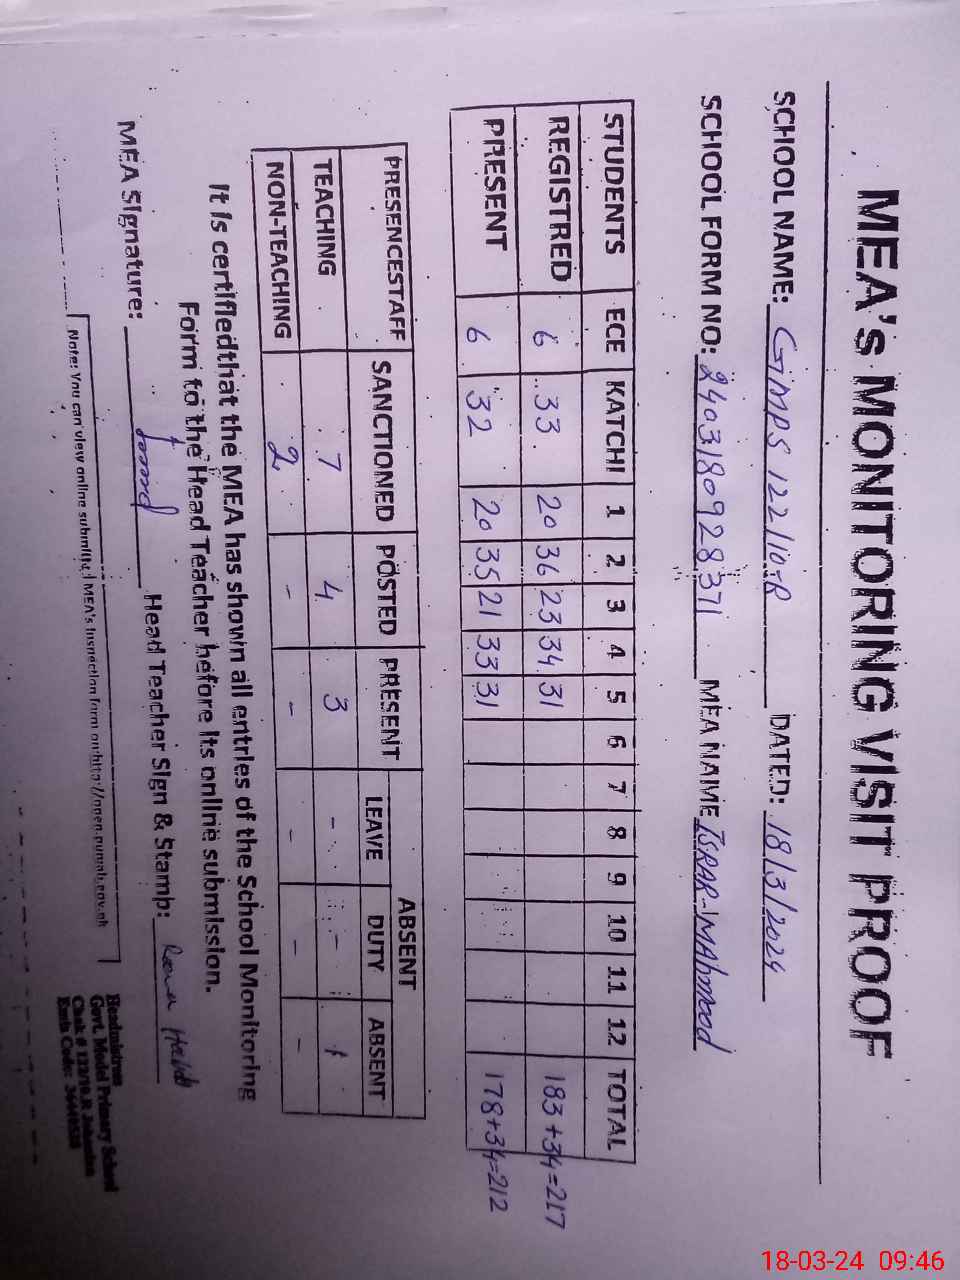 MEA's MONITORING VISIT PROOF
SCHOOL NAME: GMPS 122/10-R DATED: 18/3/2024
SCHOOL FORM NO: 240318092837 1 MEA NAME ISRAR-MAhmood
STUDENTS ECE KATCHI 1 2 3 4 5 6 7 8 9 10 11 12 TOTAL
REGISTRED 6 33 20 36 23 34 31 183+34=217
PRESENT 6 32 20 35 21 33 31 178+34=212
PRESENCESTAFF SANCTIONED POSTED PRESENT ABSENT
LEAVE DUTY ABSENT
TEACHING 7 4 3 - - 1
NON-TEACHING 2 - - - - -
It is certifiedthat the MEA has shown all entries of the School Monitoring
Form to the Head Teacher before its online submission.
MEA Signature: Head Teacher Sign & Stamp:
Note: You can view online submitted MEA's Inspection form on
Headmistress
Govt. Model Primary School
Chak # 122/10.R Jahanian
Emis Code:
18-03-24 09:46